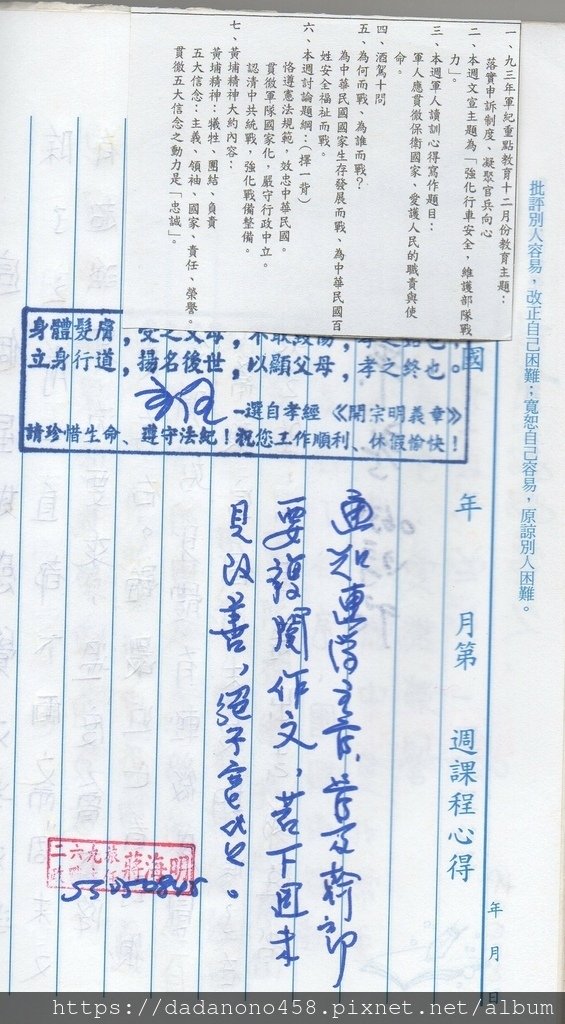 批評別人容易，改正自己困難；寬恕自己容易，原諒別人困難。
一、九三年軍紀重點教育十二月份教育主題：
落實申訴制度、凝聚官兵向心
二、本週文宣主題為「強化行車安全，維護部隊戰
力」。
三、本週軍人讀訓心得寫作題目：
軍人應貫徹保衛國家、愛護人民的職責與使
命。
四、酒駕十問
五、為何而戰、為誰而戰？
為中華民國國家生存發展而戰、為中華民國百
姓安全福祉而戰。
六、本週討論題綱：（擇一背）
恪遵憲法規範，效忠中華民國。
貫徹軍隊國家化，嚴守行政中立。
認清中共統戰，強化戰備整備。
七、黃埔精神大約內容：
黃埔精神：犧牲、團結、負責
五大信念：主義、領袖、國家、責任、榮譽。
貫徹五大信念之動力是「忠誠」。
國 年 月第 週課程心得
年 月 日
身體髮膚，受之父母，不敢毀傷，孝之始也，
立身行道，揚名後世，以顯父母，孝之終也。
—選自孝經《開宗明義章》
請珍惜生命、遵守法紀！祝您工作順利、休假愉快！
通知連營主官、管及幹部
要複閱作文，若下週未
見改善，絕予
二六九旅
蔣海明
https://dadanono458.pixnet.net/album